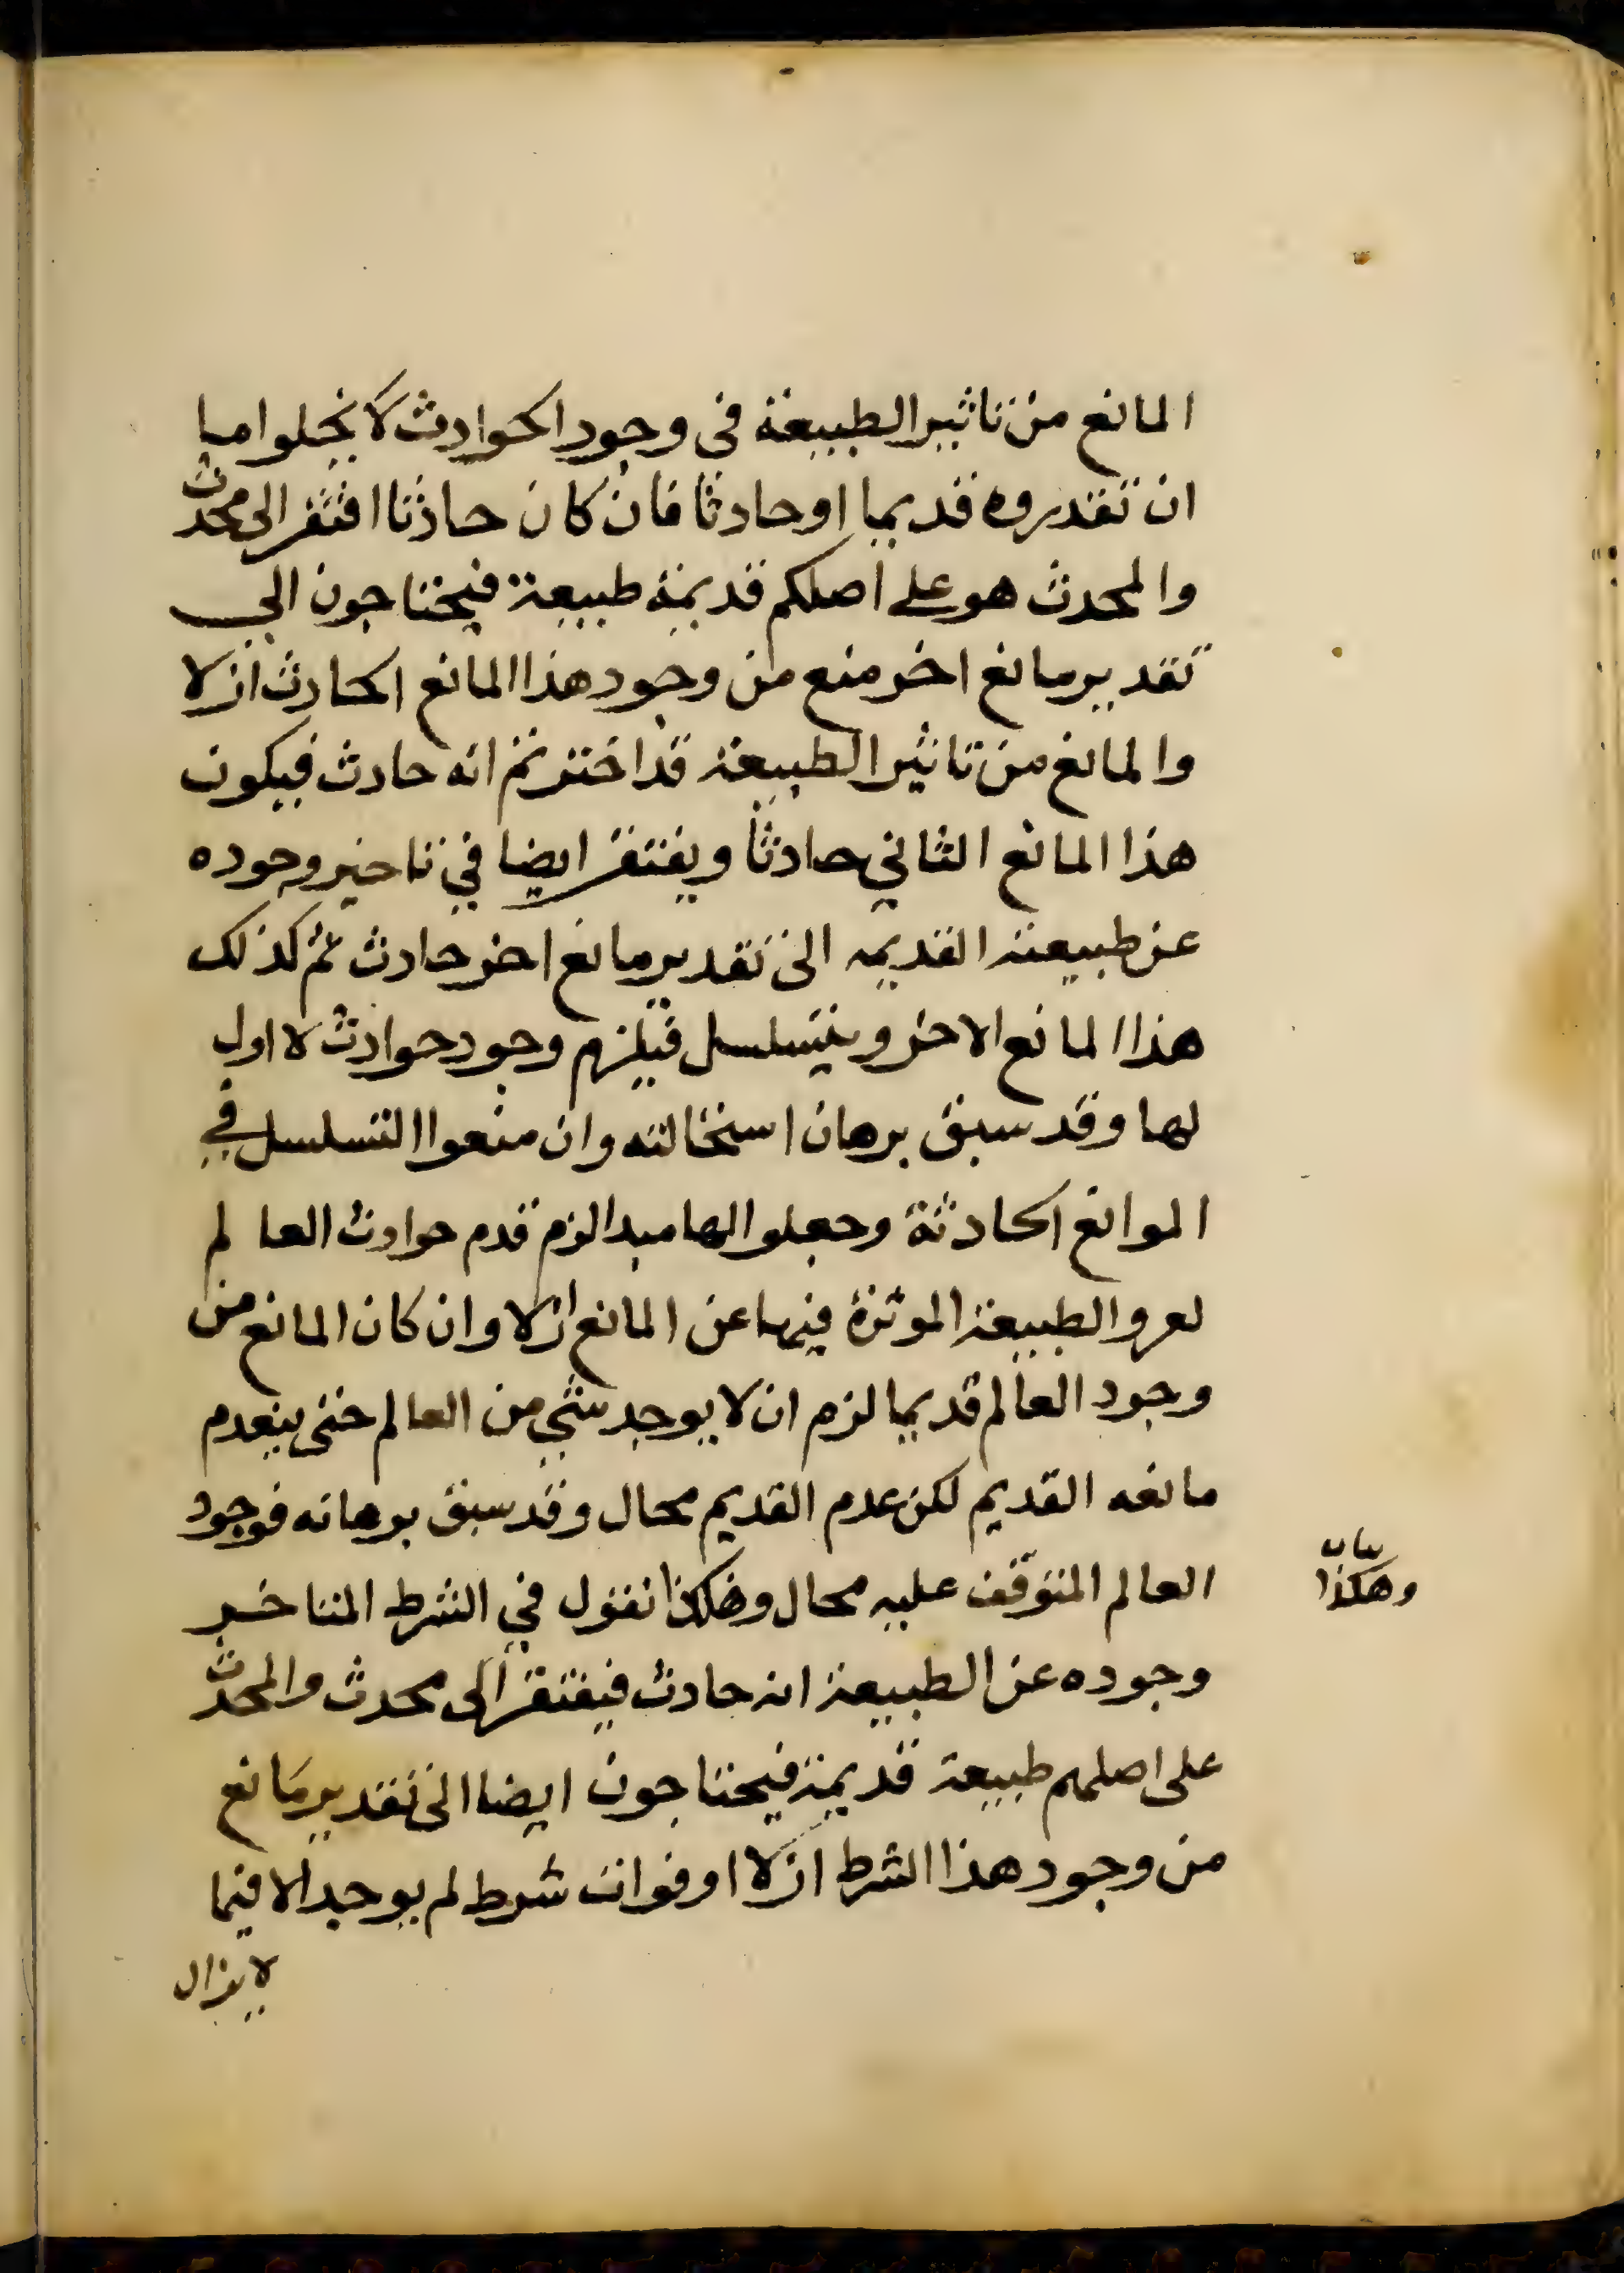 المانع من تاثير الطبيعة في وجود الحوادث لا يخلوا اما
ان تقدروه قديما او حادثا فان كان حادثا افتقر الى محدث
والمحدث هو على اصلكم قديمة طبيعة فيحتاجون الى
تقدير مانع اخر منع من وجود هذا المانع الحادث ازلا
والمانع من تاثير الطبيعة قد اخترتم انه حادث فيكون
هذا المانع الثاني حادثا ويفتقر ايضا في تاخير وجوده
عن طبيعته القديمه الى تقدير مانع اخر حادث ثم كذلك
هذا المانع الاخر ويتسلسل فيلزم وجود حوادث لا اول
لها وقد سبق برهان استحالته وان منعوا التسلسل في
الموانع الحادثة وجعلوا لها مبدا لزم قدم حوادث العالم
لعرو الطبيعة الموثرة فيها عن المانع ازلا وان كان المانع من
وجود العالم قديما لزم ان لا يوجد شي من العالم حتى ينعدم
مانعه القديم لكن عدم القديم محال وقد سبق برهانه فوجود
العالم المتوقف عليه محال وهكذا نقول في الشرط المتاخر
وجوده عن الطبيعة انه حادث فيفتقر الى محدث والمحدث
على اصلهم طبيعة قديمة فيحتاجون ايضا الى تقدير مانع
من وجود هذا الشرط ازلا او فوات شرط لم يوجد الا فيما
لا يزال
بيان
وهكذا